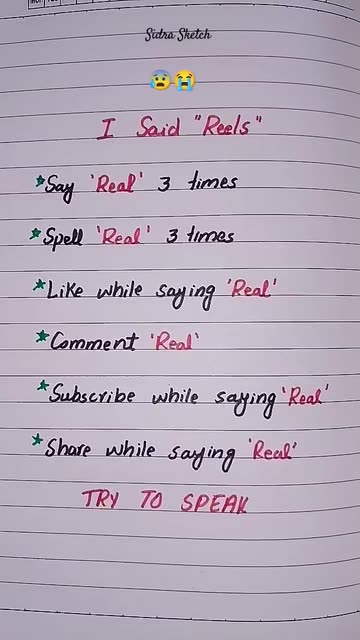 Sidra Sketch
😰😭
I Said "Reels"
*Say 'Real' 3 times
*Spell 'Real' 3 times
*Like while saying 'Real'
*Comment 'Real'
*Subscribe while saying 'Real'
*Share while saying 'Real'
TRY TO SPEAK